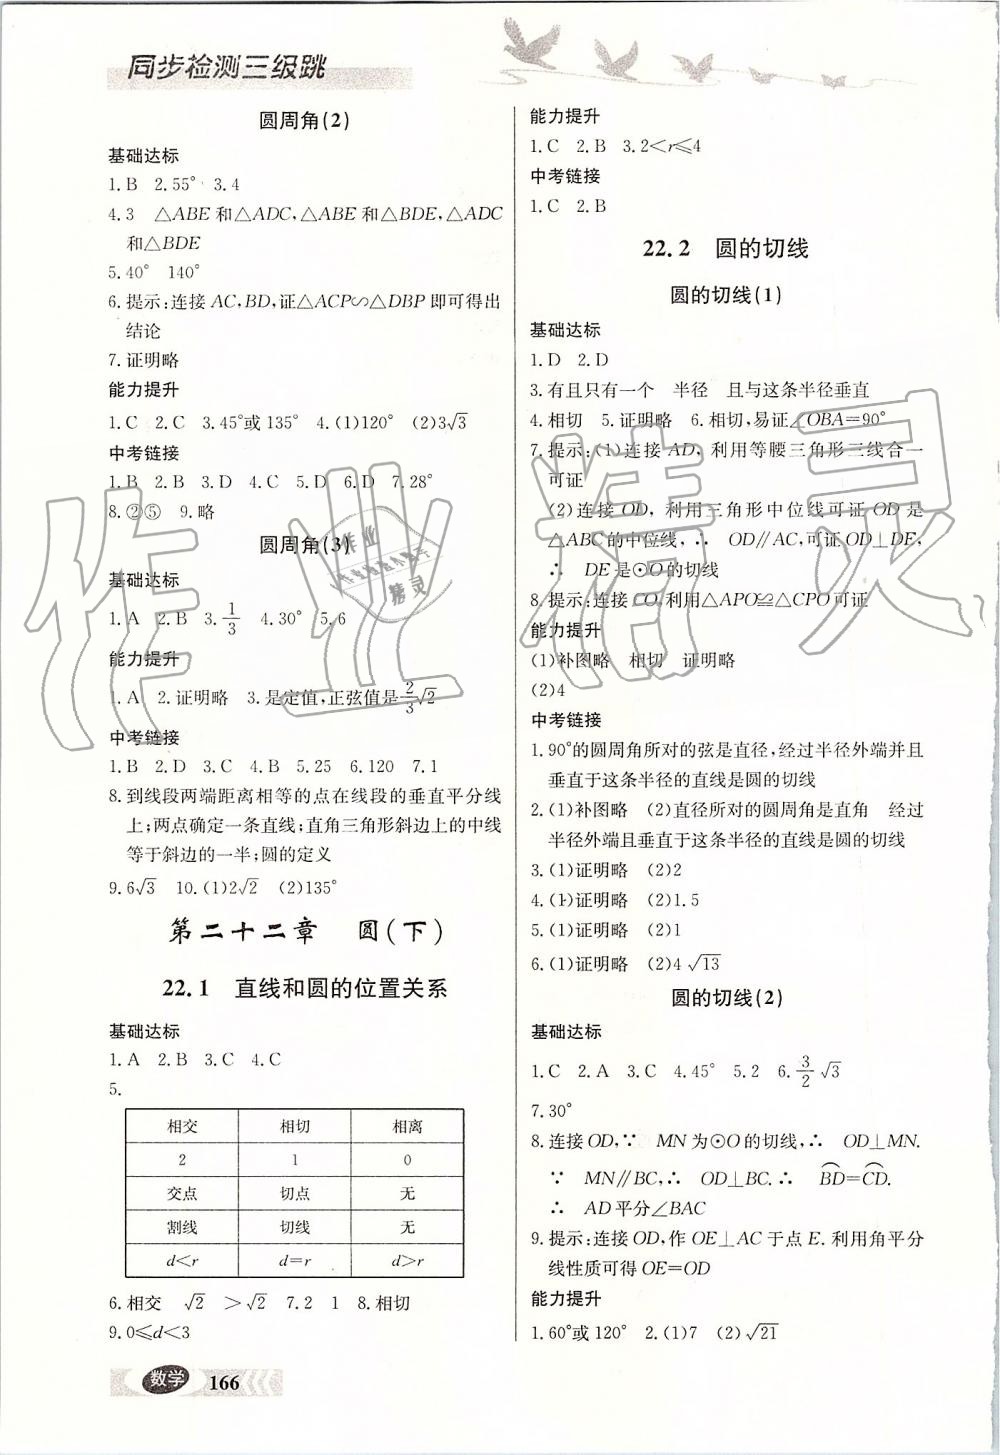 同步检测三级跳
圆周角(2)
基础达标
1.B 2.55° 3.4
4.3 △ABE和△ADC,△ABE和△BDE,△ADC
和△BDE
5.40° 140°
6.提示:连接AC,BD,证△ACP∽△DBP即可得出
结论
7.证明略
能力提升
1.C 2.C 3.45°或135° 4.(1)120° (2)3√3
中考链接
1.B 2.B 3.D 4.C 5.D 6.D 7.28°
8.②⑤ 9.略
圆周角(3)
基础达标
1.A 2.B 3.1/3 4.30° 5.6
能力提升
1.A 2.证明略 3.是定值,正弦值是2/3√2
中考链接
1.B 2.D 3.C 4.B 5.25 6.120 7.1
8.到线段两端距离相等的点在线段的垂直平分线
上;两点确定一条直线;直角三角形斜边上的中线
等于斜边的一半;圆的定义
9.6√3 10.(1)2√2 (2)135°
第二十二章 圆(下)
22.1 直线和圆的位置关系
基础达标
1.A 2.B 3.C 4.C
5.
相交 相切 相离
2 1 0
交点 切点 无
割线 切线 无
d<r d=r d>r
6.相交 √2 >√2 7.2 1 8.相切
9.0≤d<3
数学 166
能力提升
1.C 2.B 3.2<r≤4
中考链接
1.C 2.B
22.2 圆的切线
圆的切线(1)
基础达标
1.D 2.D
3.有且只有一个 半径 且与这条半径垂直
4.相切 5.证明略 6.相切,易证∠OBA=90°
7.提示:(1)连接AD,利用等腰三角形三线合一
可证
(2)连接OD,利用三角形中位线可证OD是
△ABC的中位线,∴ OD∥AC,可证OD⊥DE,
∴ DE是⊙O的切线
8.提示:连接CO,利用△APO≌△CPO可证
能力提升
(1)补图略 相切 证明略
(2)4
中考链接
1.90°的圆周角所对的弦是直径,经过半径外端并且
垂直于这条半径的直线是圆的切线
2.(1)补图略 (2)直径所对的圆周角是直角 经过
半径外端且垂直于这条半径的直线是圆的切线
3.(1)证明略 (2)2
4.(1)证明略 (2)1.5
5.(1)证明略 (2)1
6.(1)证明略 (2)4√13
圆的切线(2)
基础达标
1.C 2.A 3.C 4.45° 5.2 6.3/2√3
7.30°
8.连接OD,∵ MN为⊙O的切线,∴ OD⊥MN.
∵ MN∥BC,∴ OD⊥BC.∴ B͡D=C͡D.
∴ AD平分∠BAC
9.提示:连接OD,作OE⊥AC于点E.利用角平分
线性质可得OE=OD
能力提升
1.60°或120° 2.(1)7 (2)√21
作业精灵